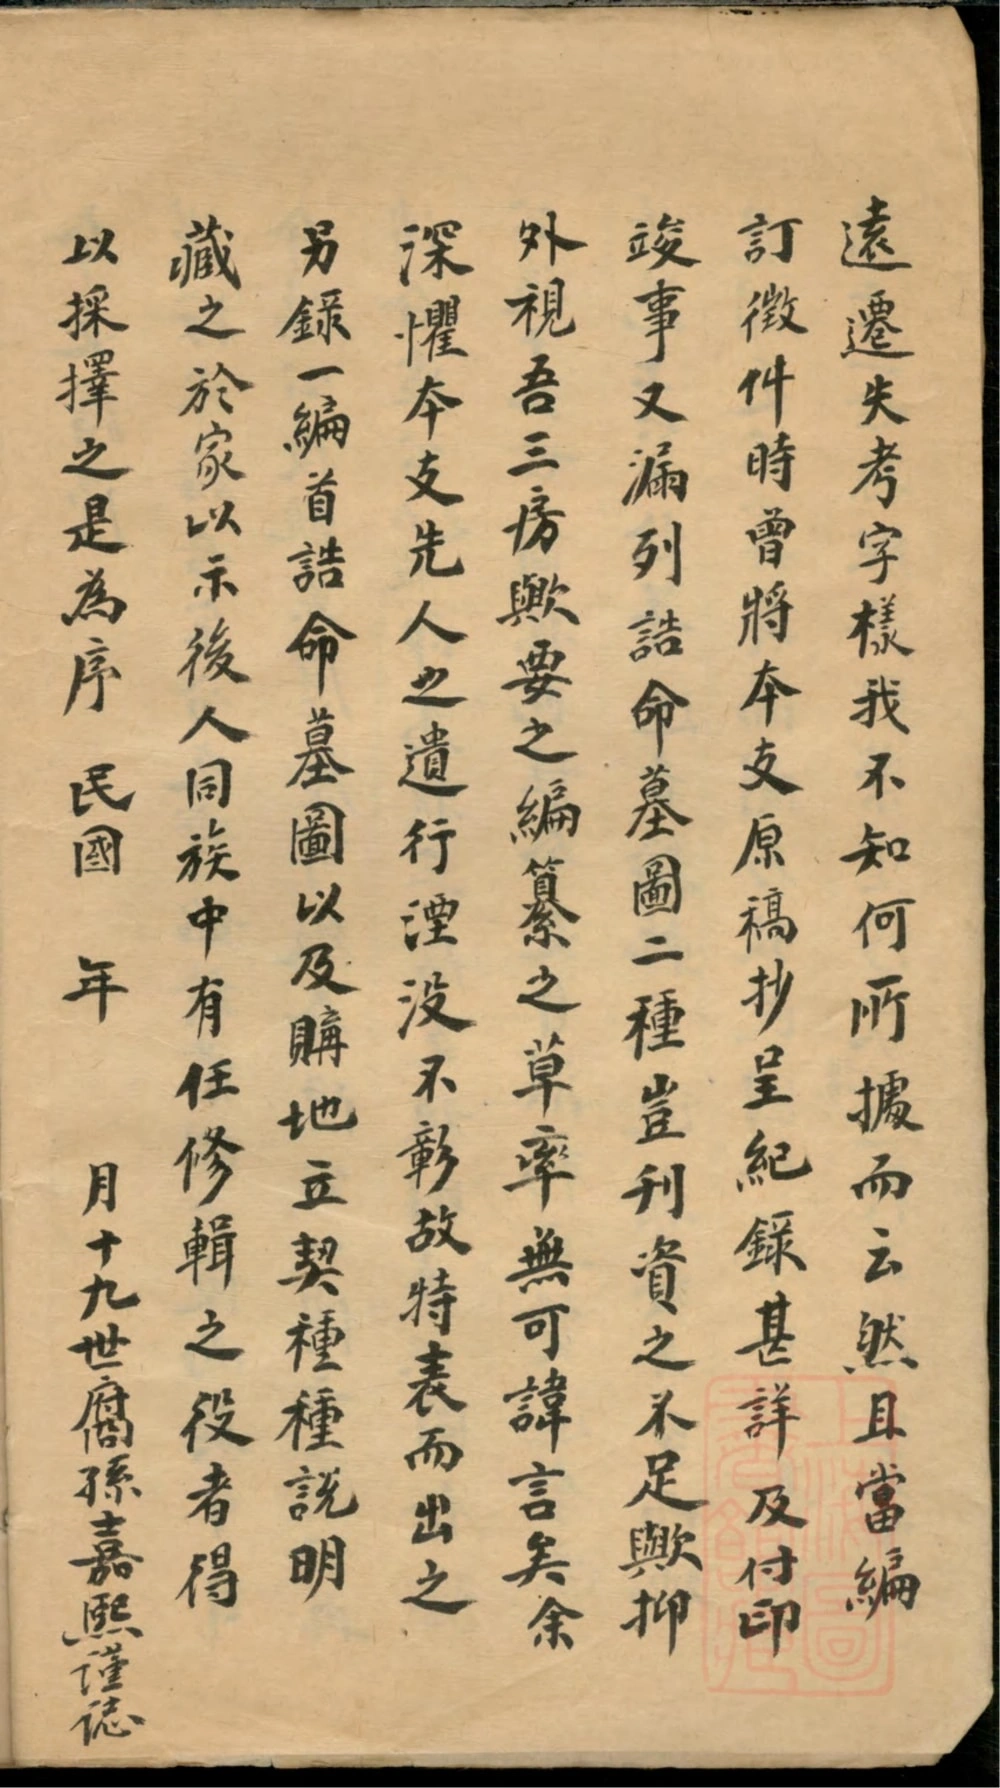 遠遷失考字樣我不知何所據而云然且當編
訂徵件時曾將本支原稿抄呈紀錄甚詳及付印
竣事又漏列誥命墓圖二種豈刊資之不足歟抑
外視吾三房歟要之編纂之草率無可諱言矣余
深懼本支先人之遺行湮没不彰故特表而出之
另錄一編首誥命墓圖以及購地立契種種說明
藏之於家以示後人同族中有任修輯之役者得
以採擇之是為序 民國 年 月十九世裔孫嘉熙謹誌